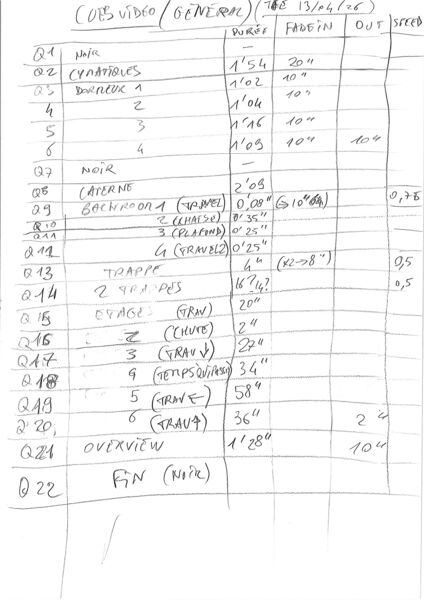 CUES VIDÉO / GÉNÉRAL) ( 13/04/26)
DURÉE FADE IN OUT SPEED
Q1 NOIR —
Q2 CYMATIQUES 1'54 20"
Q3 DORMEUR 1 1'02 10"
4 2 1'04 10"
5 3 1'16 10"
6 4 1'09 10" 10"
Q7 NOIR —
Q8 CAVERNE 2'09
Q9 BACKROOM 1 (TRAVEL) 0'08" 0,75
Q10 2 (CHAISE) 0'35"
Q11 3 (PLAFOND) 0'25"
Q12 4 (TRAVEL2) 0'25"
Q13 TRAPPE 4" (x2→8") 0,5
Q14 2 TRAPPES 16?/14? 0,5
Q15 ETAGES (TRAV) 20"
Q16 2 (CHUTE) 2"
Q17 3 (TRAV↓) 27"
Q18 4 (TEMPSQUIPASSE) 34"
Q19 5 (TRAV←) 58"
Q20 6 (TRAV↑) 36" 2"
Q21 OVERVIEW 1'28" 10"
Q22 FIN (NOIR)